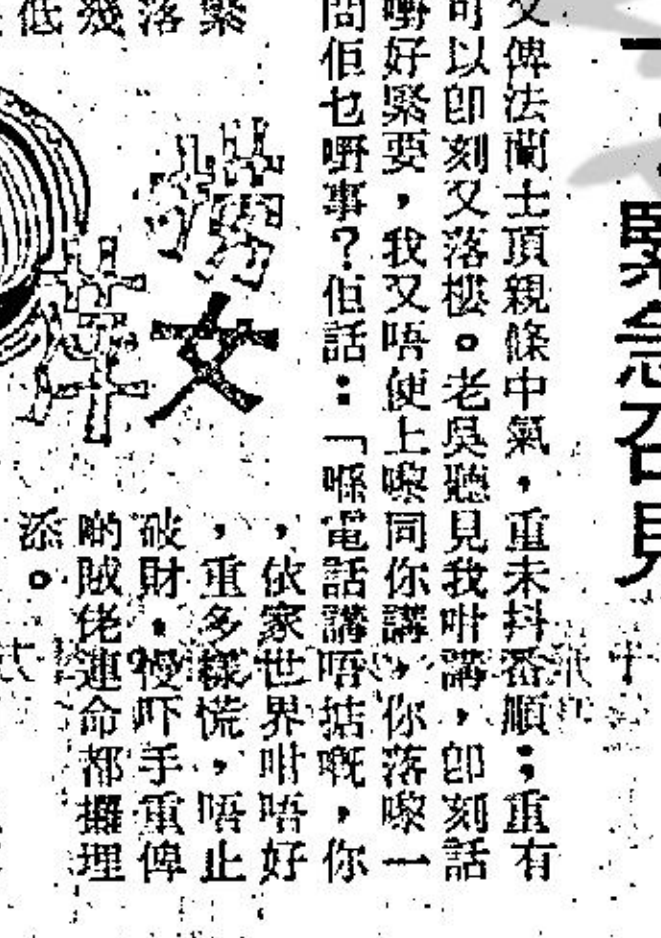 緊急召見
又俾法蘭士頂親條中氣，重未抖番順；重有
可以即刻又落樓。老吳聽見我咁講，即刻話
嘢好緊要，我又唔使上嚟同你講，你落嚟一
問佢乜嘢事？佢話：「喺電話講唔掂嘅，你
，依家世界咁唔好
，重多樣慌，唔止
破財，慢吓手重俾
啲賊佬連命都攞埋
添。
緊
落
幾
低
女